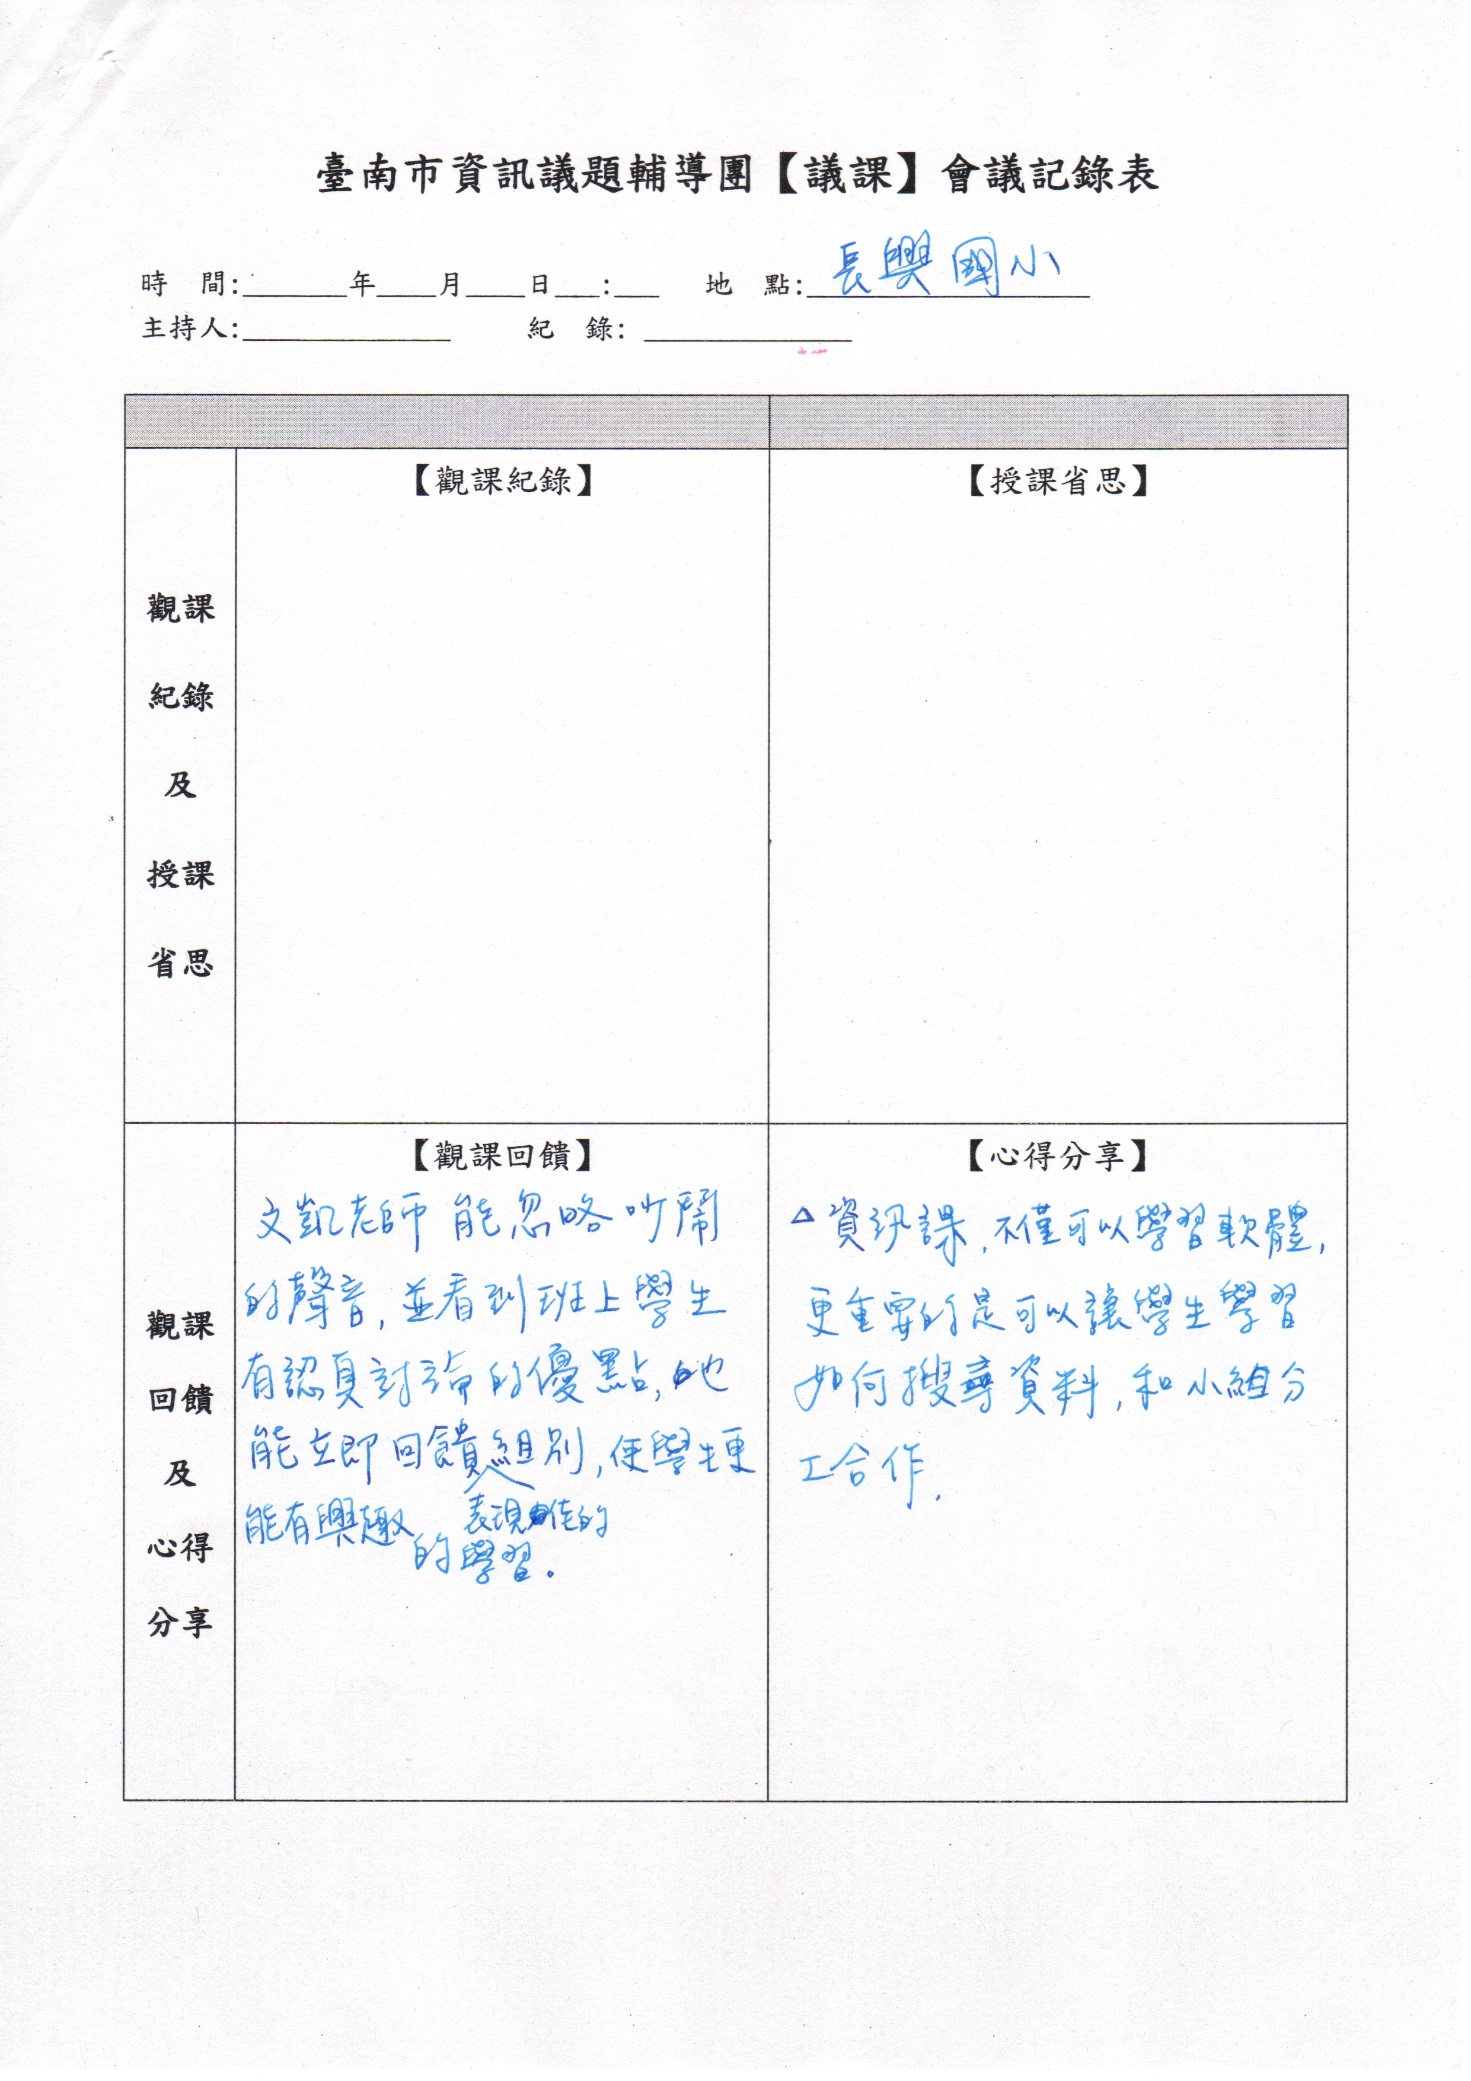 臺南市資訊議題輔導團【議課】會議記錄表
時　間:______年____月____日___:___　地　點:長興國小
主持人:______________　紀　錄:______________
【觀課紀錄】
【授課省思】
觀課
紀錄
及
授課
省思
【觀課回饋】
文凱老師能忽略吵鬧
的聲音,並看到班上學生
有認真討論的優點,他
能立即回饋表現佳的組別,使學生更
能有興趣的學習。
【心得分享】
△資訊課,不僅可以學習軟體,
更重要的是可以讓學生學習
如何搜尋資料,和小組分
工合作.
觀課
回饋
及
心得
分享